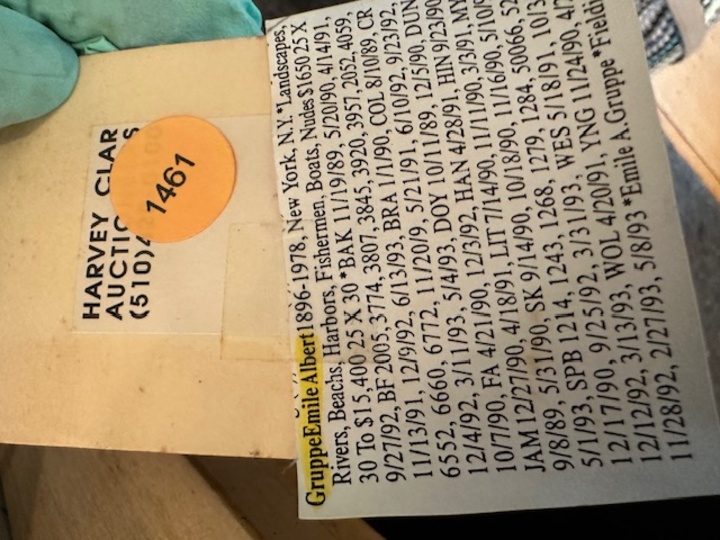 HARVEY CLAR
AUCTIO S
(510)4
1461
GruppeEmile Albert1896-1978, New York, N.Y. *Landscapes,
Rivers, Beachs, Harbors, Fishermen, Boats, Nudes $1650 25 X
30 To $15,400 25 X 30 *BAK 11/19/89, 5/20/90, 4/14/91,
9/27/92, BF 2005, 3774, 3807, 3845, 3920, 3957, 2052, 4059,
11/13/91, 12/9/92, 6/13/93, BRA 1/1/90, COL 8/10/89, CR
6552, 6660, 6772, 11/20/9, 5/21/91, 6/10/92, 9/23/92,
12/4/92, 3/11/93, 5/4/93, DOY 10/11/89, 12/5/90, DUN
10/7/90, FA 4/21/90, 12/3/92, HAN 4/28/91, HN 9/23/90
JAM 12/27/90, 4/18/91, LIT 7/14/90, 11/11/90, 3/3/91, MY
9/8/89, 5/31/90, SK 9/14/90, 10/18/90, 11/16/90, 5/10/9
5/1/93, SPB 1214, 1243, 1268, 1279, 1284, 50066, 52
12/17/90, 9/25/92, 3/31/93, WES 5/18/91, 10/3
12/12/92, 3/13/93, WOL 4/20/91, YNG 11/24/90, 4/2
11/28/92, 2/27/93, 5/8/93 *Emile A.Gruppe *Fieldi